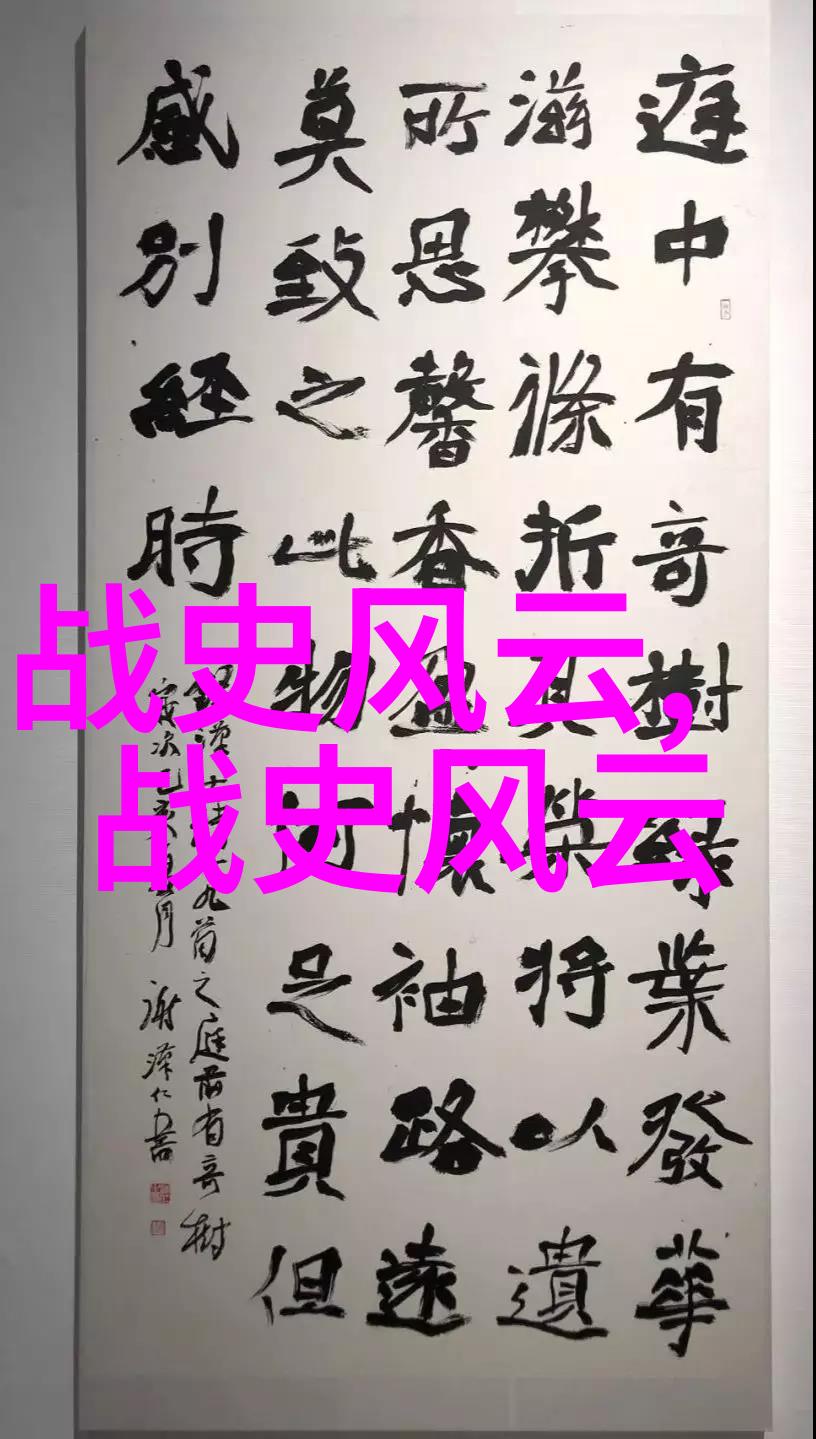 庭中有奇樹綠葉發華
滋攀條折其榮將以遺
所思馨香盈懷袖路遠
莫致之此物何足貴但
感別經時
錄漢九首之庭前有奇樹
歲次己亥月 謝澤仁書
战史风云,
战史风云